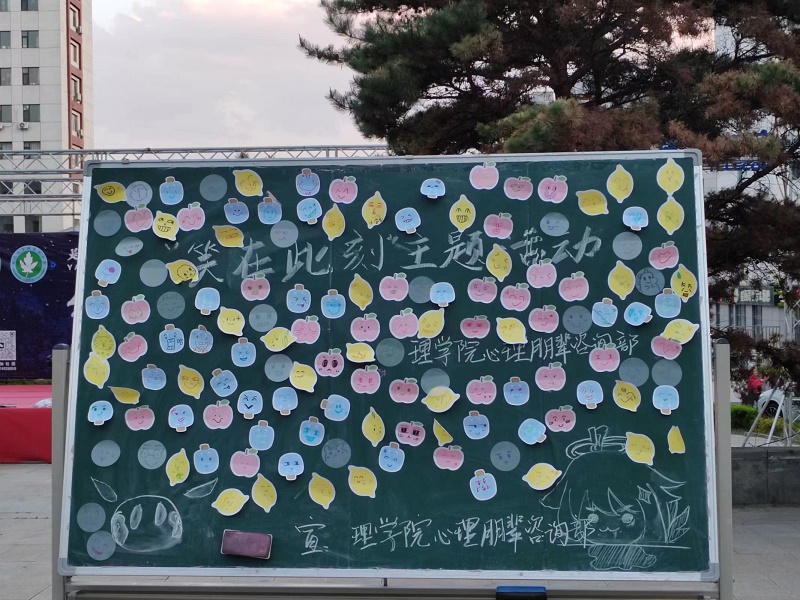 "笑在此刻"主题活动
理学院心理朋辈咨询部
宣：理学院心理朋辈咨询部